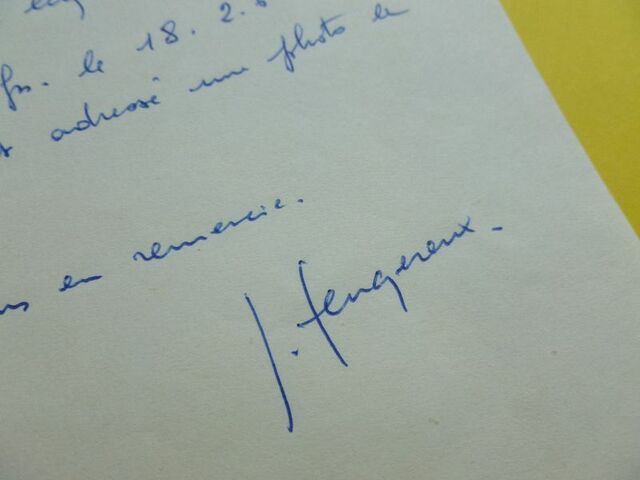 le 18. 2.
adressé une photo de
en remercie.
J. Fengereux.